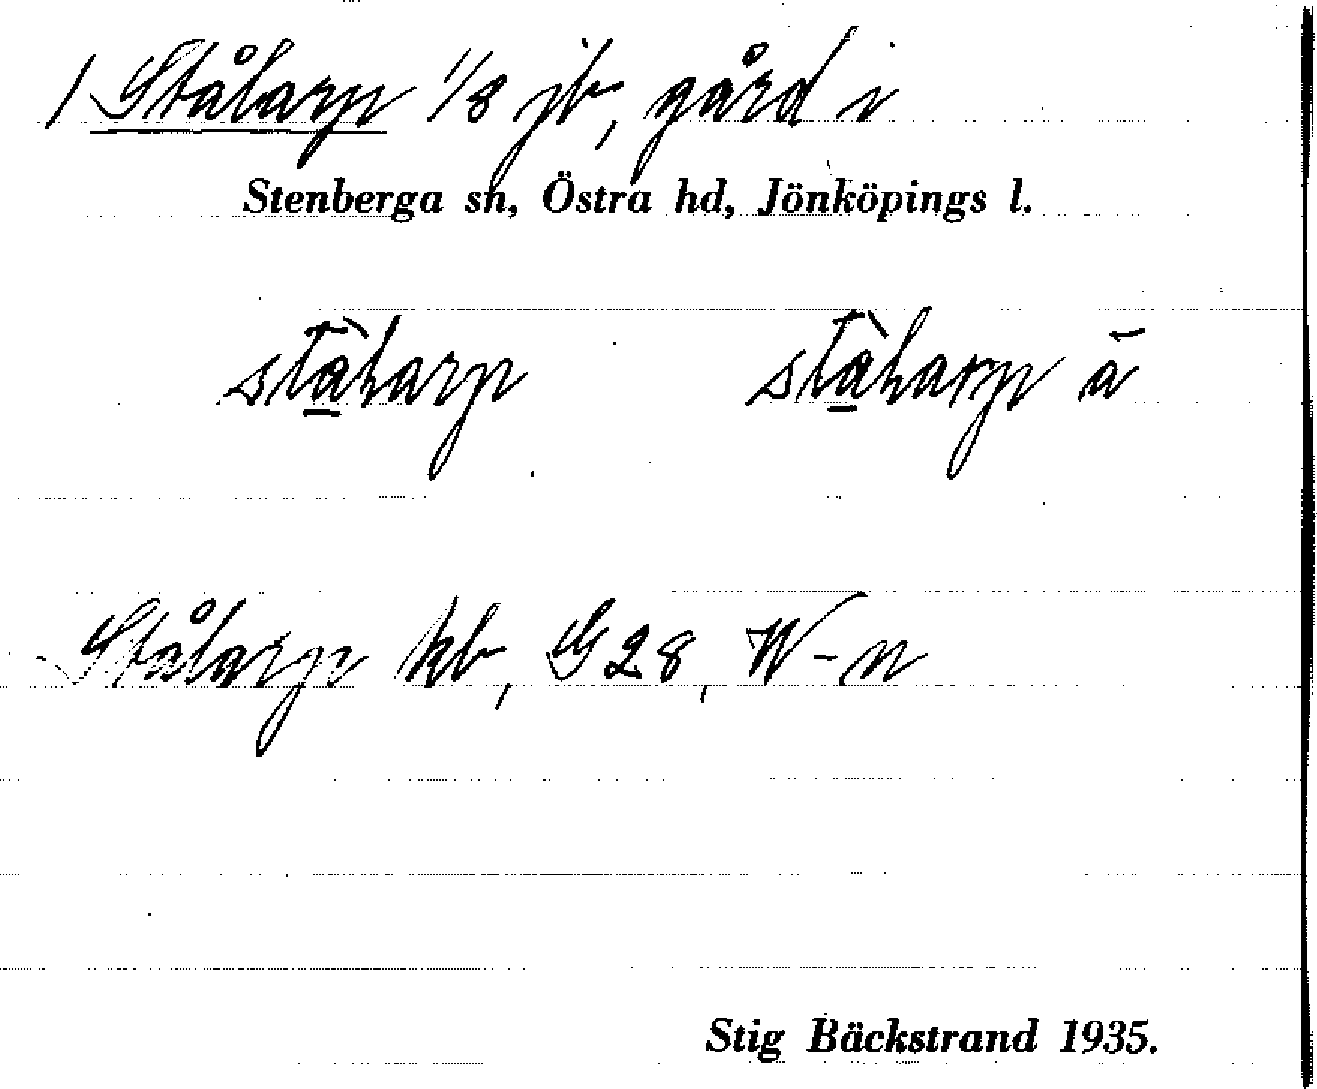 1 Stålarp 1/8 jb, gård i
Stenberga sn, Östra hd, Jönköpings l.
Stålarp kb, G28, W-n
Stig Bäckstrand 1935.